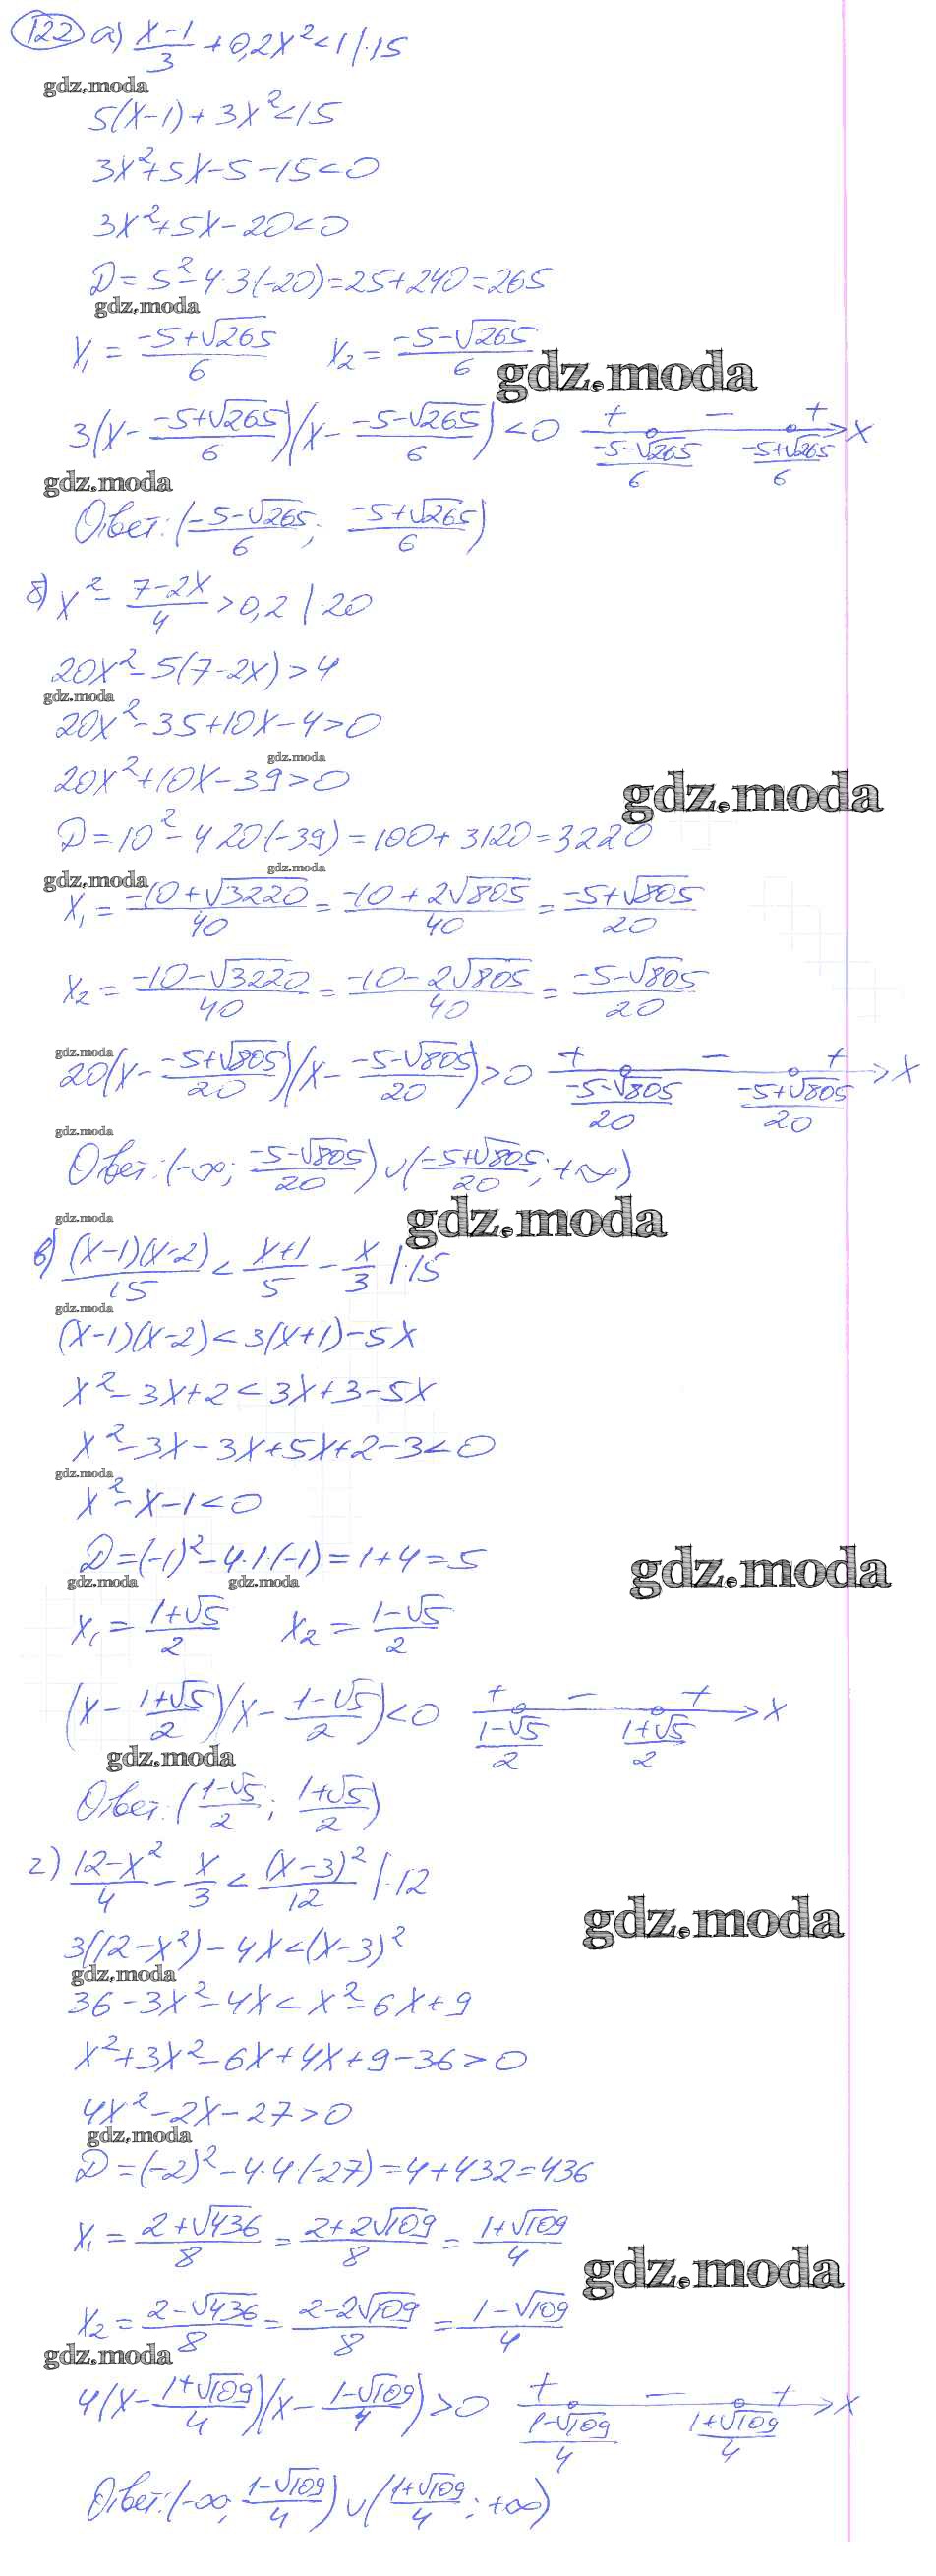 122 а) (x-1)/3 + 0,2x² < 1 | ·15
gdz.moda
5(x-1) + 3x² < 15
3x² + 5x - 5 - 15 < 0
3x² + 5x - 20 < 0
D = 5² - 4·3(-20) = 25 + 240 = 265
gdz.moda
x₁ = (-5+√265)/6 x₂ = (-5-√265)/6
gdz.moda
3(x - (-5+√265)/6)(x - (-5-√265)/6) < 0 + - + x
(-5-√265)/6 (-5+√265)/6
gdz.moda
Ответ: ((-5-√265)/6; (-5+√265)/6)
б) x² - (7-2x)/4 > 0,2 | ·20
20x² - 5(7-2x) > 4
gdz.moda
20x² - 35 + 10x - 4 > 0
gdz.moda
20x² + 10x - 39 > 0
gdz.moda
D = 10² - 4·20(-39) = 100 + 3120 = 3220
gdz.moda gdz.moda
x₁ = (-10+√3220)/40 = (-10+2√805)/40 = (-5+√805)/20
x₂ = (-10-√3220)/40 = (-10-2√805)/40 = (-5-√805)/20
gdz.moda
20(x - (-5+√805)/20)(x - (-5-√805)/20) > 0 + - + x
(-5-√805)/20 (-5+√805)/20
gdz.moda
Ответ: (-∞; (-5-√805)/20) ∪ ((-5+√805)/20; +∞)
gdz.moda gdz.moda
в) (x-1)(x-2)/15 < (x+1)/5 - x/3 | ·15
gdz.moda
(x-1)(x-2) < 3(x+1) - 5x
x² - 3x + 2 < 3x + 3 - 5x
x² - 3x - 3x + 5x + 2 - 3 < 0
gdz.moda
x² - x - 1 < 0
D = (-1)² - 4·1·(-1) = 1 + 4 = 5
gdz.moda gdz.moda gdz.moda
x₁ = (1+√5)/2 x₂ = (1-√5)/2
(x - (1+√5)/2)(x - (1-√5)/2) < 0 + - + x
(1-√5)/2 (1+√5)/2
gdz.moda
Ответ: ((1-√5)/2; (1+√5)/2)
г) (12-x²)/4 - x/3 < (x-3)²/12 | ·12
gdz.moda
3(12-x²) - 4x < (x-3)²
gdz.moda
36 - 3x² - 4x < x² - 6x + 9
x² + 3x² - 6x + 4x + 9 - 36 > 0
4x² - 2x - 27 > 0
gdz.moda
D = (-2)² - 4·4·(-27) = 4 + 432 = 436
x₁ = (2+√436)/8 = (2+2√109)/8 = (1+√109)/4
gdz.moda
x₂ = (2-√436)/8 = (2-2√109)/8 = (1-√109)/4
gdz.moda
4(x - (1+√109)/4)(x - (1-√109)/4) > 0 + - + x
(1-√109)/4 (1+√109)/4
Ответ: (-∞; (1-√109)/4) ∪ ((1+√109)/4; +∞)